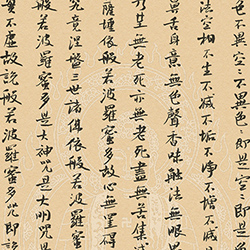 不異色色即是空空即
法空相不生不滅不垢不淨不增不減
鼻舌身意無色聲香味觸法無眼
乃至無老死亦無老死盡無苦集
薩埵依般若波羅蜜多故心無罣礙
究竟涅槃三世諸佛依般若波羅
般若波羅蜜多是大神咒是大明咒
實不虛故說般若波羅蜜多咒即